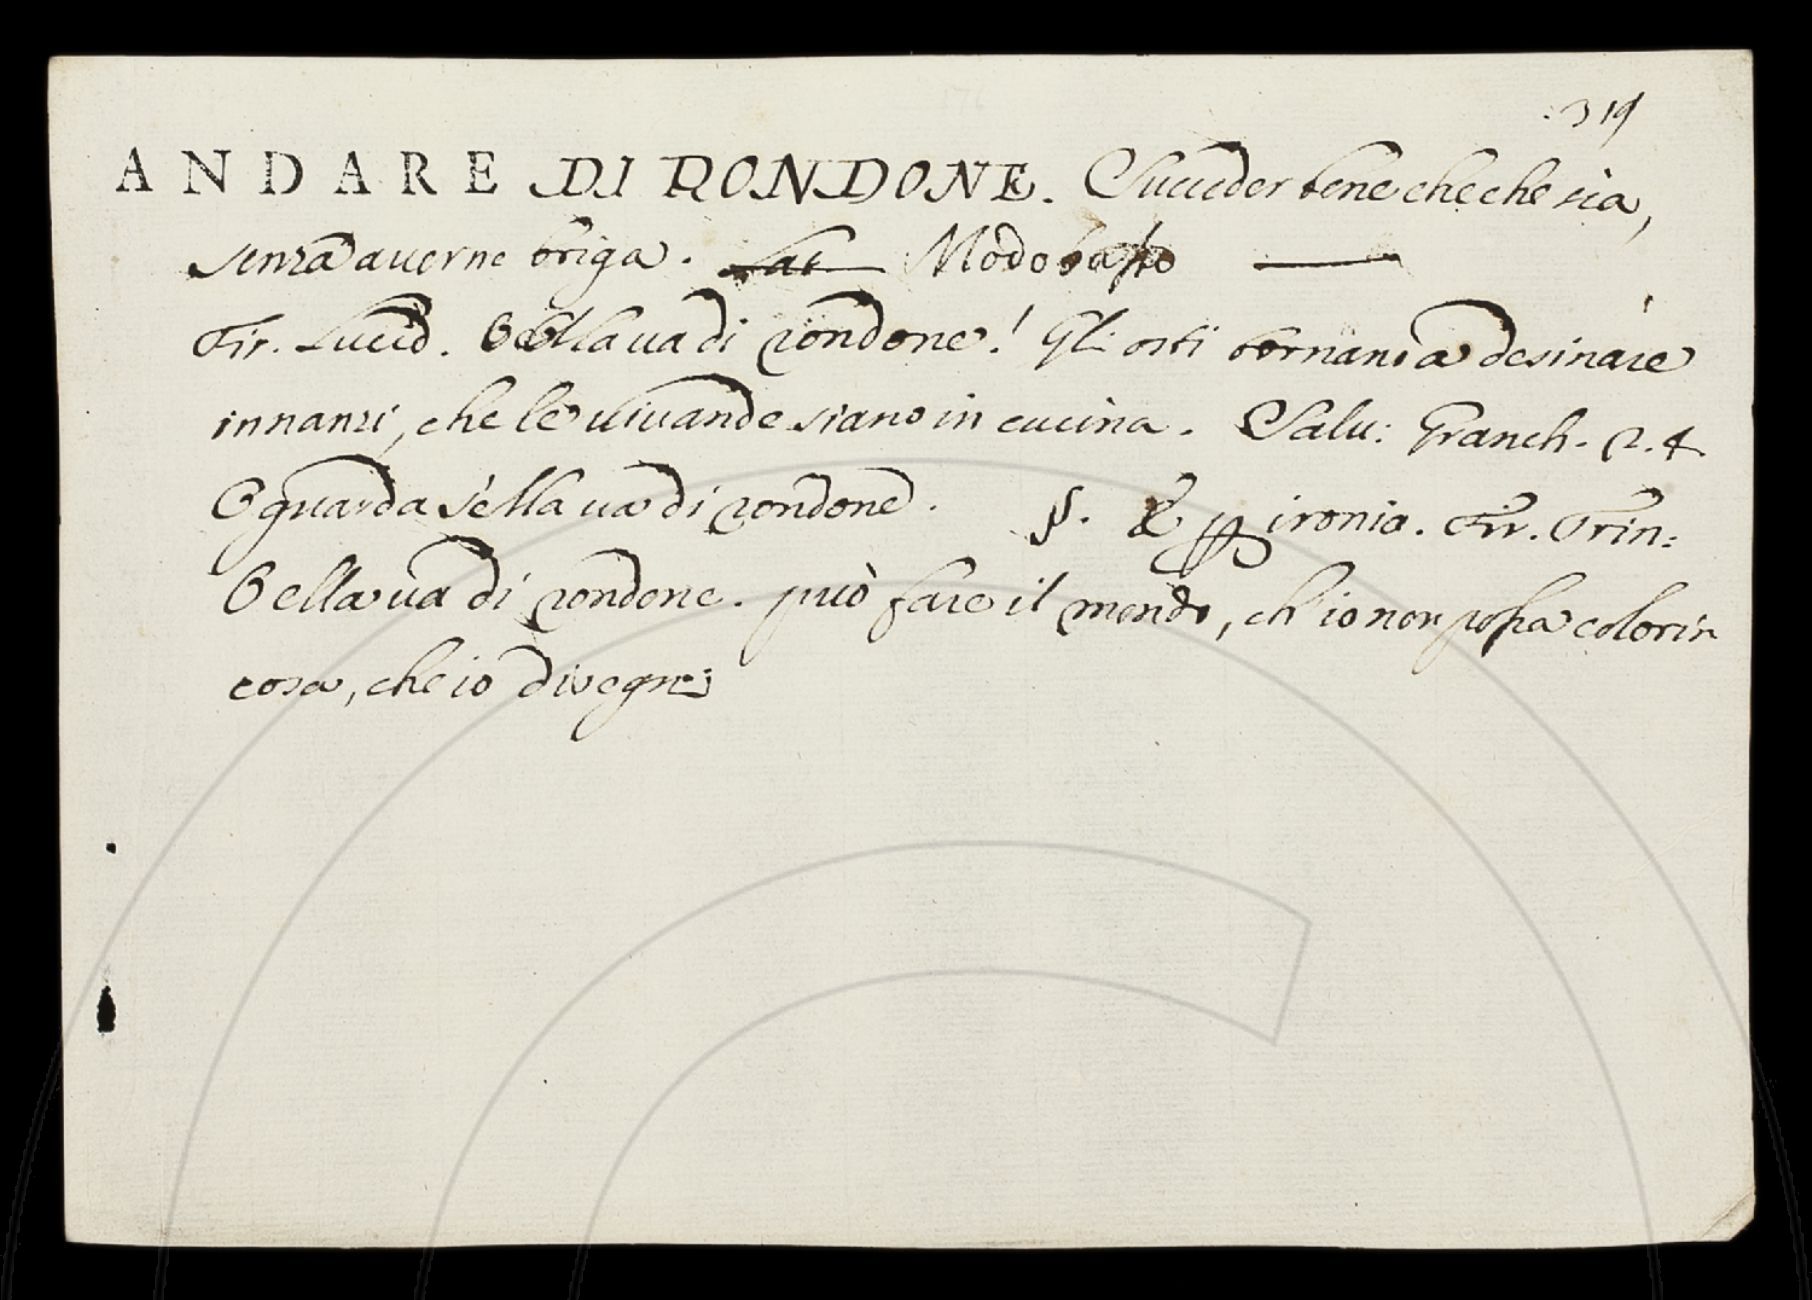 319
ANDARE DI RONDONE. Succeder bene che che sia,
senza averne briga. Lat Modo basso
Fir. Lucid. Ebella va di rondone! Gli osti tornano a desinare
innanzi, che le vivande siano in cucina. Salv: Granch. 2.4
E guarda s'ella va di rondone. §. E ꝑ ironia. Fir. Trin:
Bella va di rondone. può fare il mondo, ch'io non possa colorir
cosa, che io disegni